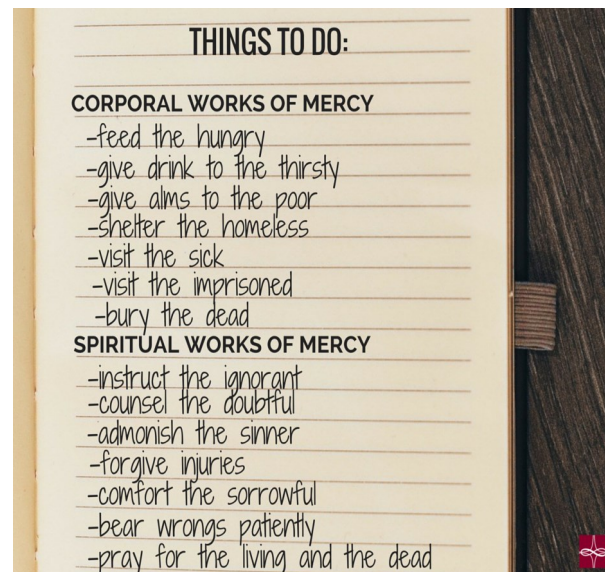 THINGS TO DO:
CORPORAL WORKS OF MERCY
-feed the hungry
-give drink to the thirsty
-give alms to the poor
-shelter the homeless
-visit the sick
-visit the imprisoned
-bury the dead
SPIRITUAL WORKS OF MERCY
-instruct the ignorant
-counsel the doubtful
-admonish the sinner
-forgive injuries
-comfort the sorrowful
-bear wrongs patiently
-pray for the living and the dead